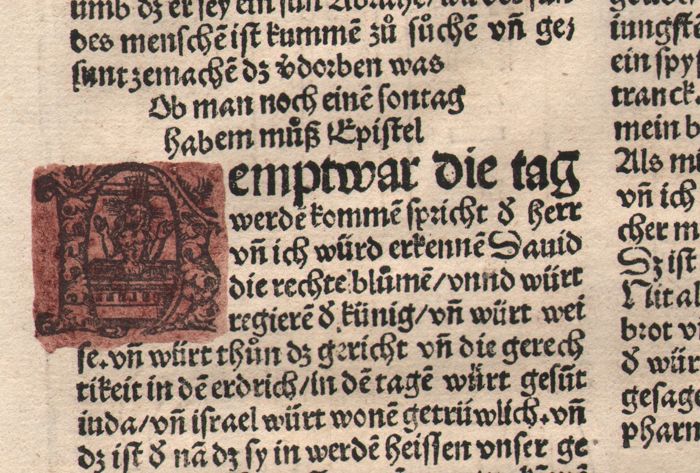 umb dz er sey ein sun Abrahe, wa des sun
des menschē ist kummē zů sůchē vn̄ ge⸗
suntzemachē dz v̓dorben was
Ob man noch einē sontag
habem můß Epistel
Nemptwar die tag
werdē kommē spricht d̓ herr
vn̄ ich würd erkennē Dauid
die rechte blůmē/vnnd würt
regierē d̓ künig/vn̄ würt wei
se.vn̄ würt thůn dz gericht vn̄ die gerech
tikeit in dē erdrich/in dē tagē würt gesūt
iuda/vn̄ israel würt wonē getrüwlich.vn̄
dz ist d̓ nā dz sy in werdē heissen vnser ge
iungf
ein spy
tranck.
mein b
Als
vn̄ ich
cher m
Dz ist
Nit al
brot v
d̓ wür
gesage
pharm